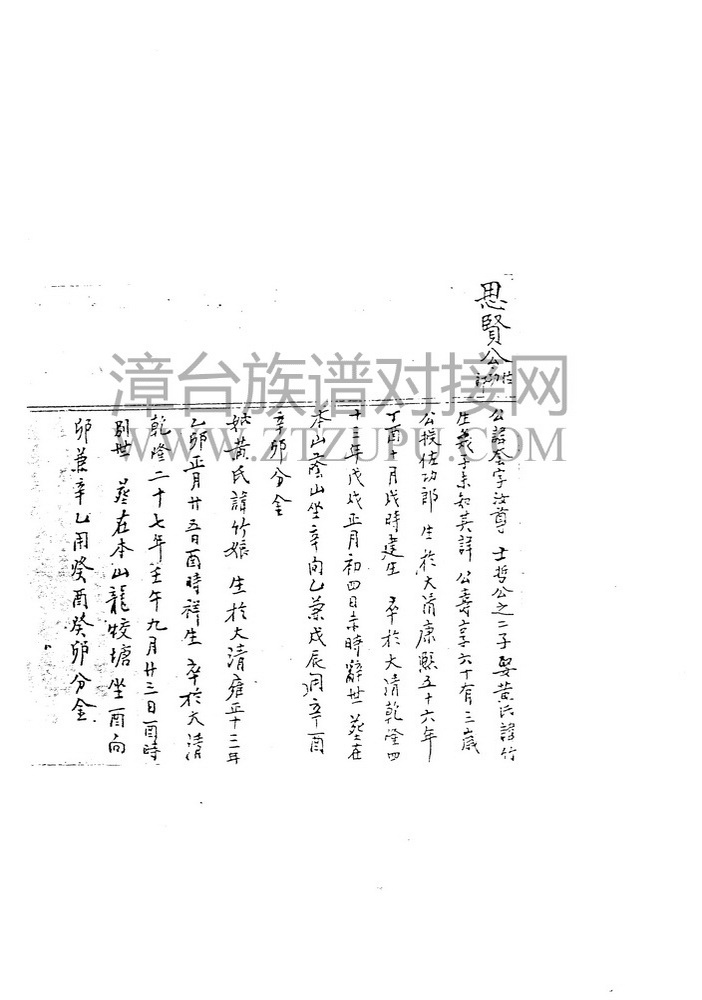 思賢公
公諱奎字汝尊 士哲公之二子 娶黃氏諱竹
生義子未知其諱 公壽享六十有三歲
公授佐功郎 生於大清康熙五十六年
丁酉十月戌時建生 卒於大清乾隆四
十三年戊戌正月初四日未時辭世 葬在
本山蔭山坐辛向乙兼戌辰用辛酉
辛卯分金
妣黃氏諱竹娘 生於大清雍正十三年
乙卯正月廿五日酉時祥生 卒於大清
乾隆二十七年壬午九月廿三日酉時
別世 葬在本山龍牧塘坐酉向
卯兼辛乙用癸酉癸卯分金
漳台族谱对接网
WWW.ZTZUPU.COM